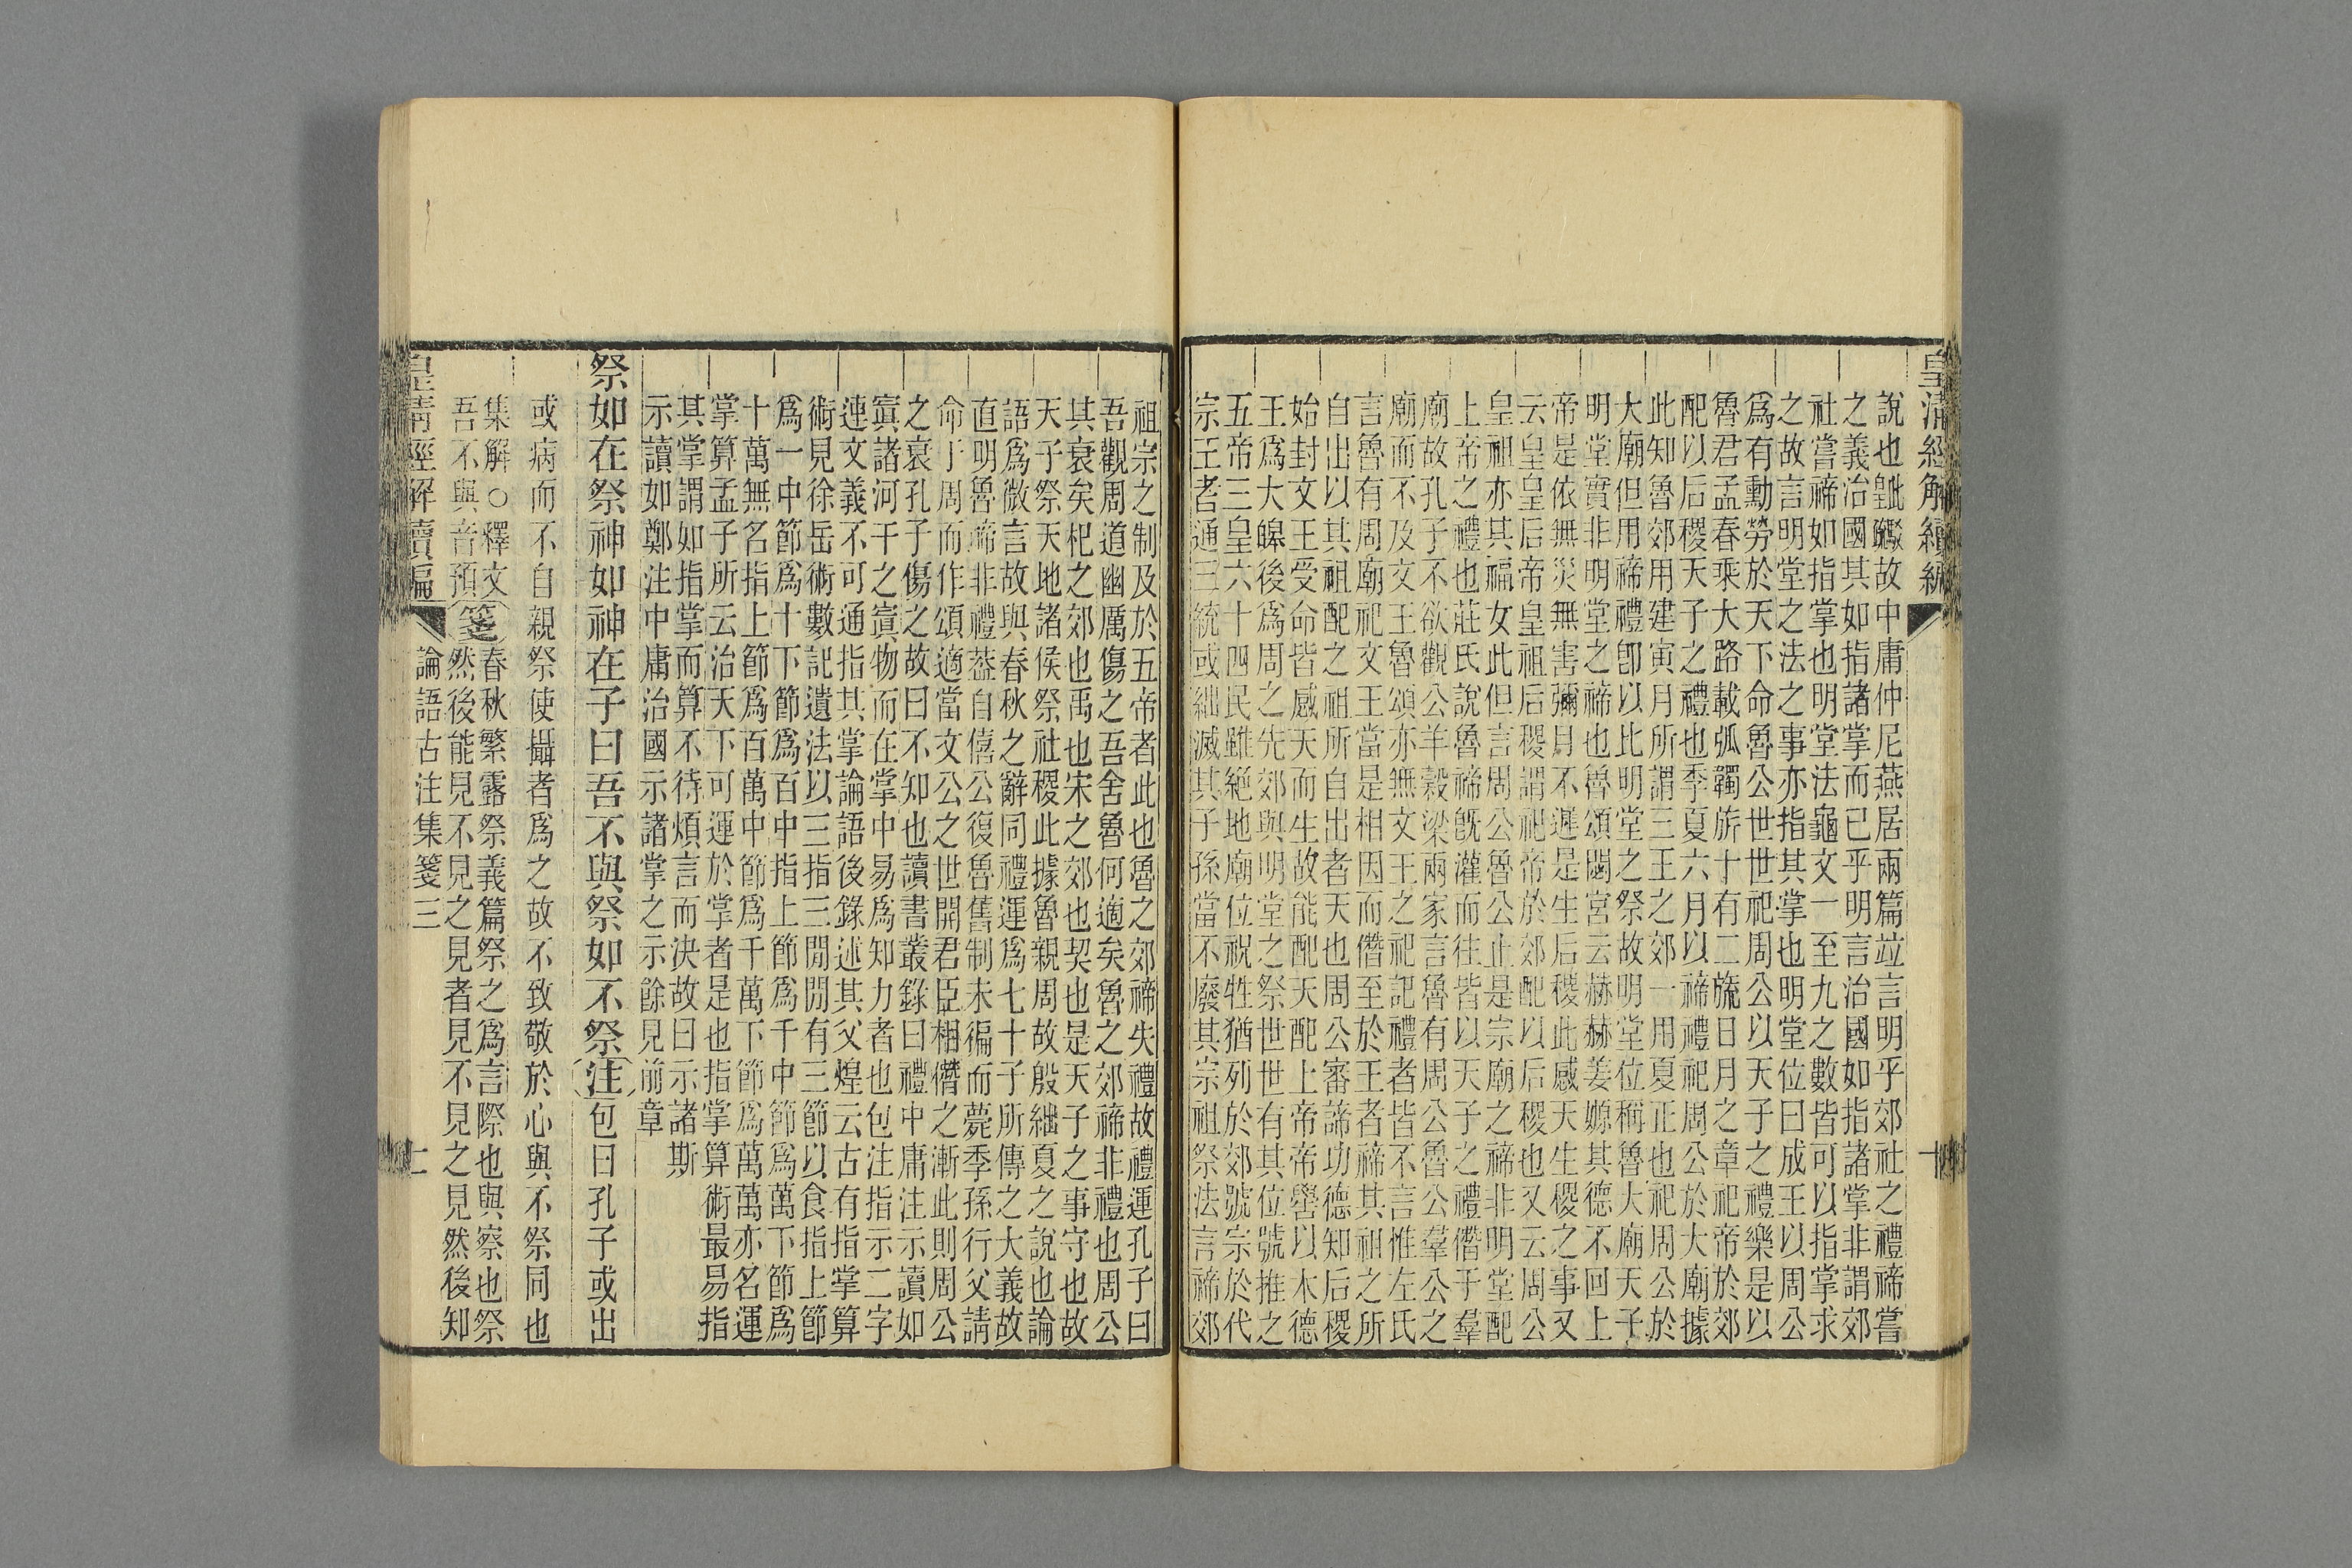 皇清經解續編
說也皇𣫍故中庸仲尼燕居兩篇竝言明乎郊社之禮禘嘗
之義治國其如指諸掌而已乎明言治國如指諸掌非謂郊
社嘗禘如指掌也明堂法龜文一至九之數皆可以指掌求
之故言明堂之法之事亦指其掌也明堂位曰成王以周公
爲有勳勞於天下命魯公世世祀周公以天子之禮樂是以
魯君孟春乘大路載弧韣旂十有二旒日月之章祀帝於郊
配以后稷天子之禮也季夏六月以禘禮祀周公於大廟據
此知魯郊用建寅月所謂三王之郊一用夏正也祀周公於
大廟但用禘禮卽以比明堂之祭故明堂位稱魯大廟天子
明堂實非明堂之禘也魯頌閟宮云赫赫姜嫄其德不回上
帝是依無災無害彌月不遲是生后稷此感天生稷之事又
云皇皇后帝皇祖后稷謂祀帝於郊配以后稷也又云周公
皇祖亦其福女此但言周公魯公止是宗廟之禘非明堂配
上帝之禮也莊氏說魯禘旣灌而往皆以天子之禮僭于羣
廟故孔子不欲觀公羊穀梁兩家言魯有周公魯公羣公之
廟而不及文王魯頌亦無文王之祀記禮者皆不言惟左氏
言魯有周廟祀文王當是相因而僭至於王者禘其祖之所
自出以其祖配之祖所自出者天也周公審諦功德知后稷
始封文王受命皆感天而生故能配天配上帝帝嚳以木德
王爲大皞後爲周之先郊與明堂之祭世世有其位號推之
五帝三皇六十四民雖絕地廟位祝牲猶列於郊號宗於代
宗王者通三統或絀滅其子孫當不廢其宗祖祭法言禘郊
祖宗之制及於五帝者此也魯之郊禘失禮故禮運孔子曰
吾觀周道幽厲傷之吾舍魯何適矣魯之郊禘非禮也周公
其衰矣杞之郊也禹也宋之郊也契也是天子之事守也故
天子祭天地諸侯祭社稷此據魯親周故殷絀夏之說也論
語爲微言故與春秋之辭同禮運爲七十子所傳之大義故
直明魯禘非禮葢自僖公復魯舊制未徧而薨季孫行父請
命于周而作頌適當文公之世開君臣相僭之漸此則周公
之衰孔子傷之故曰不知也讀書叢錄曰禮中庸注示讀如
寘諸河干之寘物而在掌中易爲知力者也包注指示二字
連文義不可通指其掌論語後錄述其父煌云古有指掌算
術見徐岳術數記遺法以三指三閒閒有三節以食指上節
爲一中節爲十下節爲百中指上節爲千中節爲萬下節爲
十萬無名指上節爲百萬中節爲千萬下節爲萬萬亦名運
掌算孟子所云治天下可運於掌者是也指掌算術最易指
其掌謂如指掌而算不待煩言而決故曰示諸斯
示讀如鄭注中庸治國示諸掌之示餘見前章
祭如在祭神如神在子曰吾不與祭如不祭注包曰孔子或出
或病而不自親祭使攝者爲之故不致敬於心與不祭同也
集解○釋文
吾不與音預
箋春秋繁露祭義篇祭之爲言際也與察也祭
然後能見不見之見者見不見之見然後知
皇清經解續編
論語古注集箋三